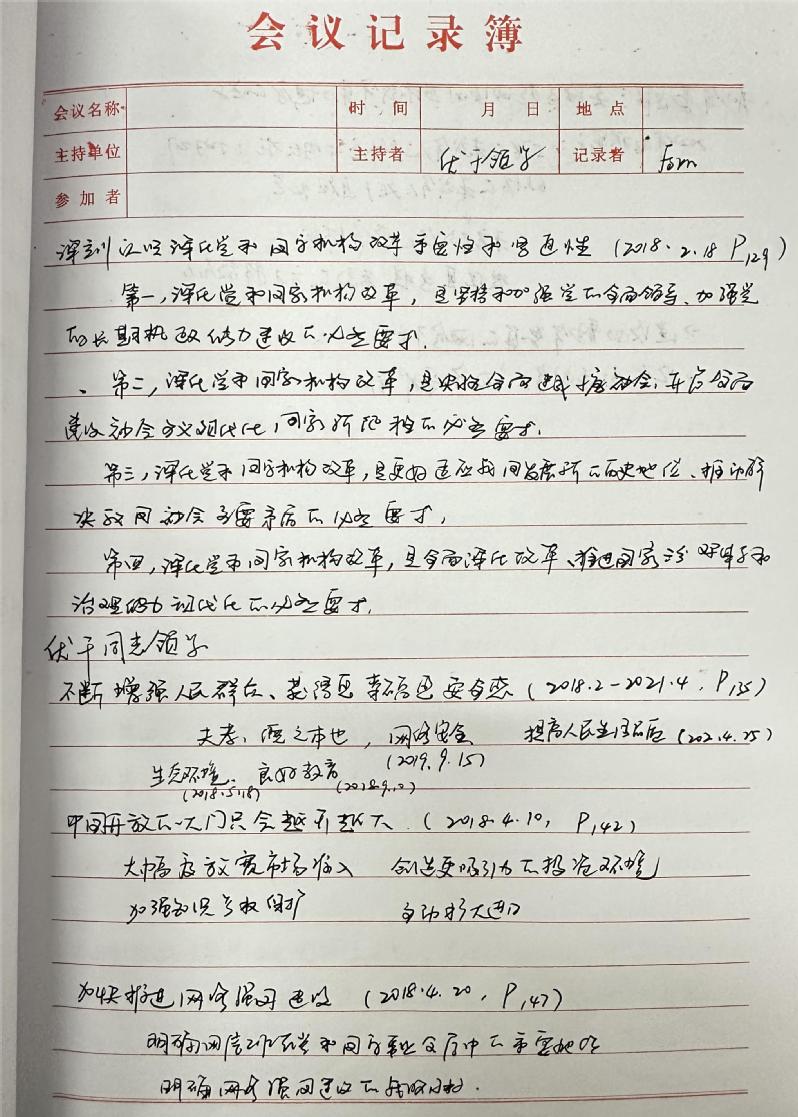 会议记录簿
会议名称 时间 月 日 地点
主持单位 主持者 伏干领学 记录者
参加者
深刻认识深化党和国家机构改革重要性和紧迫性 (2018.2.18 P129)
第一,深化党和国家机构改革,是坚持和加强党的全面领导、加强党
的长期执政能力建设的必然要求.
第二,深化党和国家机构改革,是决胜全面建成小康社会、开启全面
建设社会主义现代化国家新征程的必然要求.
第三,深化党和国家机构改革,是更好适应我国发展新的历史地位、推动解
决我国社会主要矛盾的必然要求,
第四,深化党和国家机构改革,是全面深化改革、推进国家治理体系和
治理能力现代化的必然要求.
伏干同志领学
不断增强人民群众、获得感幸福感安全感 (2018.2-2021.4, P135)
夫孝,德之本也,网络安全 提高人民生活品质 (202.4.25)
(2019.9.15)
生态环境. 良好教育
(2018.5.18) (2018.9.10)
中国开放的大门只会越开越大. (2018.4.10, P142)
大幅度放宽市场准入 创造更吸引力的投资环境
加强知识产权保护 主动扩大进口
加快推进网络强国建设 (2018.4.20, P147)
明确网信工作在党和国家事业全局中的重要地位
明确网络强国建设的战略目标.